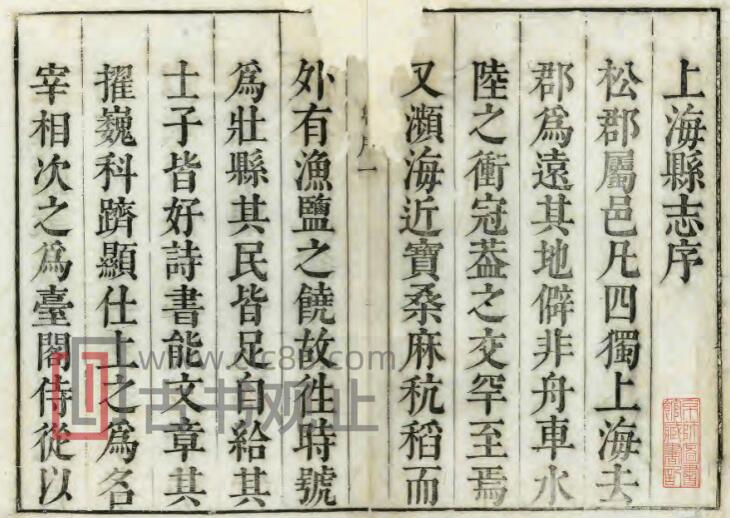 上海縣志序
松郡屬邑凡四獨上海去
郡為遠其地僻非舟車水
陸之衝冠葢之交罕至焉
又瀕海近寶桑麻秔稻而
序一
外有漁鹽之饒故徃時號
為壯縣其民皆足自給其
士子皆好詩書能文章其
擢巍科躋顯仕上之為名
宰相次之為臺閣侍從以
www.cc8b.com
古书观止